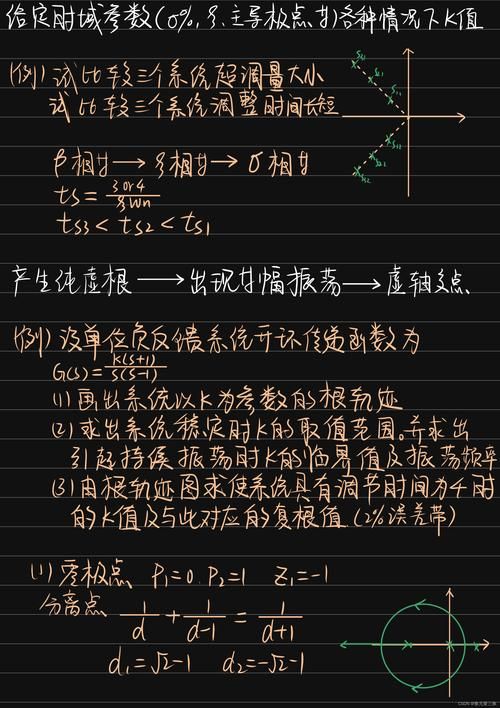 给定时域参数(σ%,ξ,主导极点,β)各种情况下K值
(例) 试比较三个系统超调量大小
试比较三个系统调整时间长短
β相等→ξ相等→σ相等
ts=3 or 4/ξωn
ts3<ts2<ts1
产生纯虚根→出现等幅振荡→虚轴交点
(例) 设单位负反馈系统开环传递函数为
G(s)=K(s+1)/s(s-1)
(1) 画出系统以K为参数的根轨迹
(2) 求出系统稳定时K的取值范围。并求出
引起持续振荡时K的临界值及振荡频率
(3) 由根轨迹图求使系统具有调节时间为4时
的K值及与此对应的复根值(2%误差带)
(1) 零极点 P1=0. P2=1 Z1=-1
分离点 1/d+1/d-1=1/d+1
d1=√2-1 d2=-√2-1